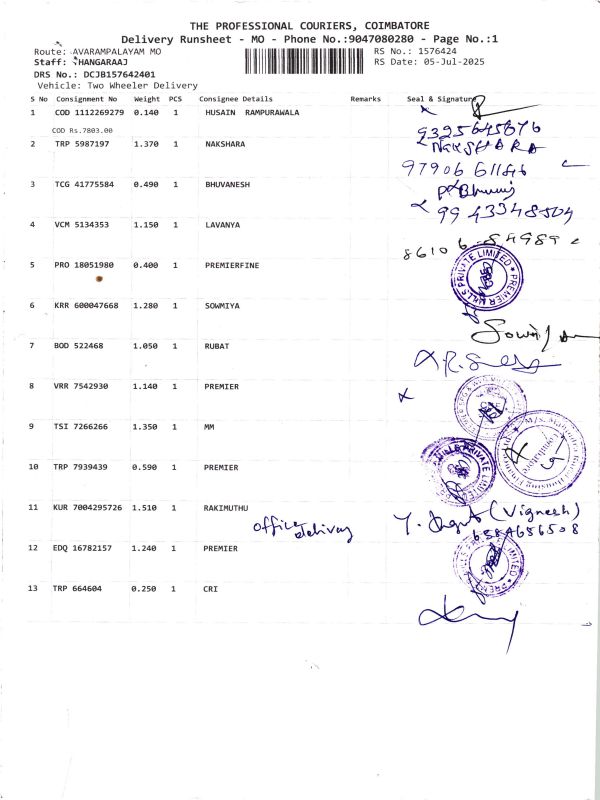 THE PROFESSIONAL COURIERS, COIMBATORE
Delivery Runsheet - MO - Phone No.:9047080280 - Page No.:1
Route: AVARAMPALAYAM MO RS No.: 1576424
Staff: HANGARAAJ RS Date: 05-Jul-2025
DRS No.: DCJB157642401
Vehicle: Two Wheeler Delivery
S No Consignment No Weight PCS Consignee Details Remarks Seal & Signature
1 COD 1112269279 0.140 1 HUSAIN RAMPURAWALA
COD Rs.7803.00
2 TRP 5987197 1.370 1 NAKSHARA NAKSHARA
97906 61146
3 TCG 41775584 0.490 1 BHUVANESH
99 43348504
4 VCM 5134353 1.150 1 LAVANYA
86106 54989
5 PRO 18051980 0.400 1 PREMIERFINE PREMIER MILLS PRIVATE LIMITED
6 KRR 600047668 1.280 1 SOWMIYA
7 BOD 522468 1.050 1 RUBAT
8 VRR 7542930 1.140 1 PREMIER
9 TSI 7266266 1.350 1 MM
10 TRP 7939439 0.590 1 PREMIER
11 KUR 7004295726 1.510 1 RAKIMUTHU (Vignesh)
office delivery
12 EDQ 16782157 1.240 1 PREMIER
13 TRP 664604 0.250 1 CRI